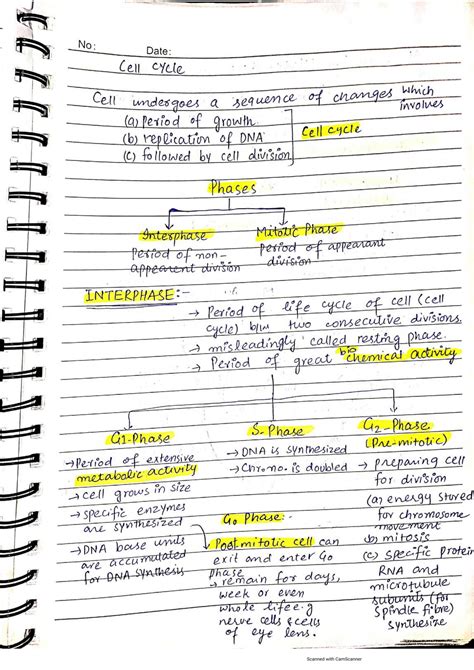 No:
Date:
Cell cycle
Cell undergoes a sequence of changes which
involves
(a) Period of growth
(b) replication of DNA
(c) followed by cell division
Cell cycle
Phases
Interphase
Period of non-
appearent division
Mitotic Phase
Period of appearant
division
INTERPHASE:-
→ Period of life cycle of cell (cell
cycle) b/w two consecutive divisions.
→ misleadingly called resting phase.
→ Period of great bio chemical activity
G1-Phase
→ Period of extensive
metabolic activity
→ cell grows in size
→ specific enzymes
are synthesized
→ DNA base units
are accumulated
for DNA synthesis
S-Phase
→ DNA is synthesized
→ Chromo. is doubled
G2-Phase
(Pre-mitotic)
→ preparing cell
for division
(a) energy stored
for chromosome
movement
b) mitosis
(c) specific protein
RNA and
microtubule
subunits (for
spindle fibre)
synthesize
G0 Phase:-
Postmitotic cell can
exit and enter G0
phase
→ remain for days,
week or even
whole life e.g
nerve cells & cells
of eye lens.
Scanned with CamScanner